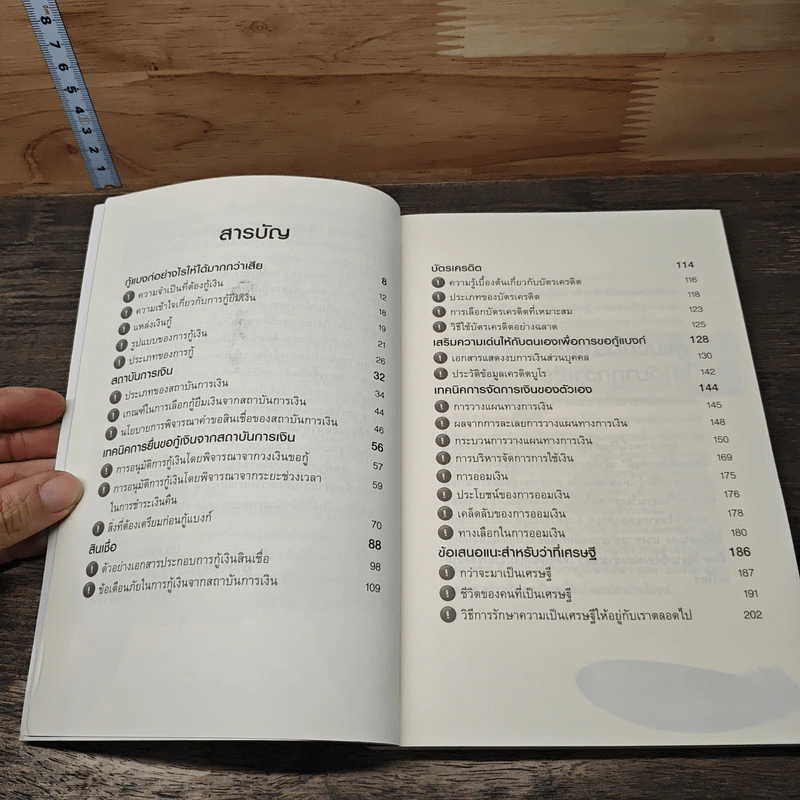 8 7 6 5 4 3 2 1
สารบัญ
กู้แบงก์อย่างไรให้ได้มากกว่าเสีย 8
ความจำเป็นที่ต้องกู้เงิน 12
ความเข้าใจเกี่ยวกับการกู้ยืมเงิน 18
แหล่งเงินกู้ 19
รูปแบบของการกู้เงิน 21
ประเภทของการกู้ 26
สถาบันการเงิน 32
ประเภทของสถาบันการเงิน 34
เกณฑ์ในการเลือกกู้ยืมเงินจากสถาบันการเงิน 44
นโยบายการพิจารณาคำขอสินเชื่อของสถาบันการเงิน 46
เทคนิคการยื่นขอกู้เงินจากสถาบันการเงิน 56
การอนุมัติการกู้เงินโดยพิจารณาจากวงเงินขอกู้ 57
การอนุมัติการกู้เงินโดยพิจารณาจากระยะช่วงเวลา 59
ในการชำระเงินคืน
สิ่งที่ต้องเตรียมก่อนกู้แบงก์ 70
สินเชื่อ 88
ตัวอย่างเอกสารประกอบการกู้เงินสินเชื่อ 98
ข้อเตือนภัยในการกู้เงินจากสถาบันการเงิน 109
บัตรเครดิต 114
ความรู้เบื้องต้นเกี่ยวกับบัตรเครดิต 116
ประเภทของบัตรเครดิต 118
การเลือกบัตรเครดิตที่เหมาะสม 123
วิธีใช้บัตรเครดิตอย่างฉลาด 125
เสริมความเด่นให้กับตนเองเพื่อการขอกู้แบงก์ 128
เอกสารแสดงงบการเงินส่วนบุคคล 130
ประวัติข้อมูลเครดิตบูโร 142
เทคนิคการจัดการเงินของตัวเอง 144
การวางแผนทางการเงิน 145
ผลจากการละเลยการวางแผนทางการเงิน 148
กระบวนการวางแผนทางการเงิน 150
การบริหารจัดการการใช้เงิน 169
การออมเงิน 175
ประโยชน์ของการออมเงิน 176
เคล็ดลับของการออมเงิน 178
ทางเลือกในการออมเงิน 180
ข้อเสนอแนะสำหรับว่าที่เศรษฐี 186
กว่าจะมาเป็นเศรษฐี 187
ชีวิตของคนที่เป็นเศรษฐี 191
วิธีการรักษาความเป็นเศรษฐีให้อยู่กับเราตลอดไป 202